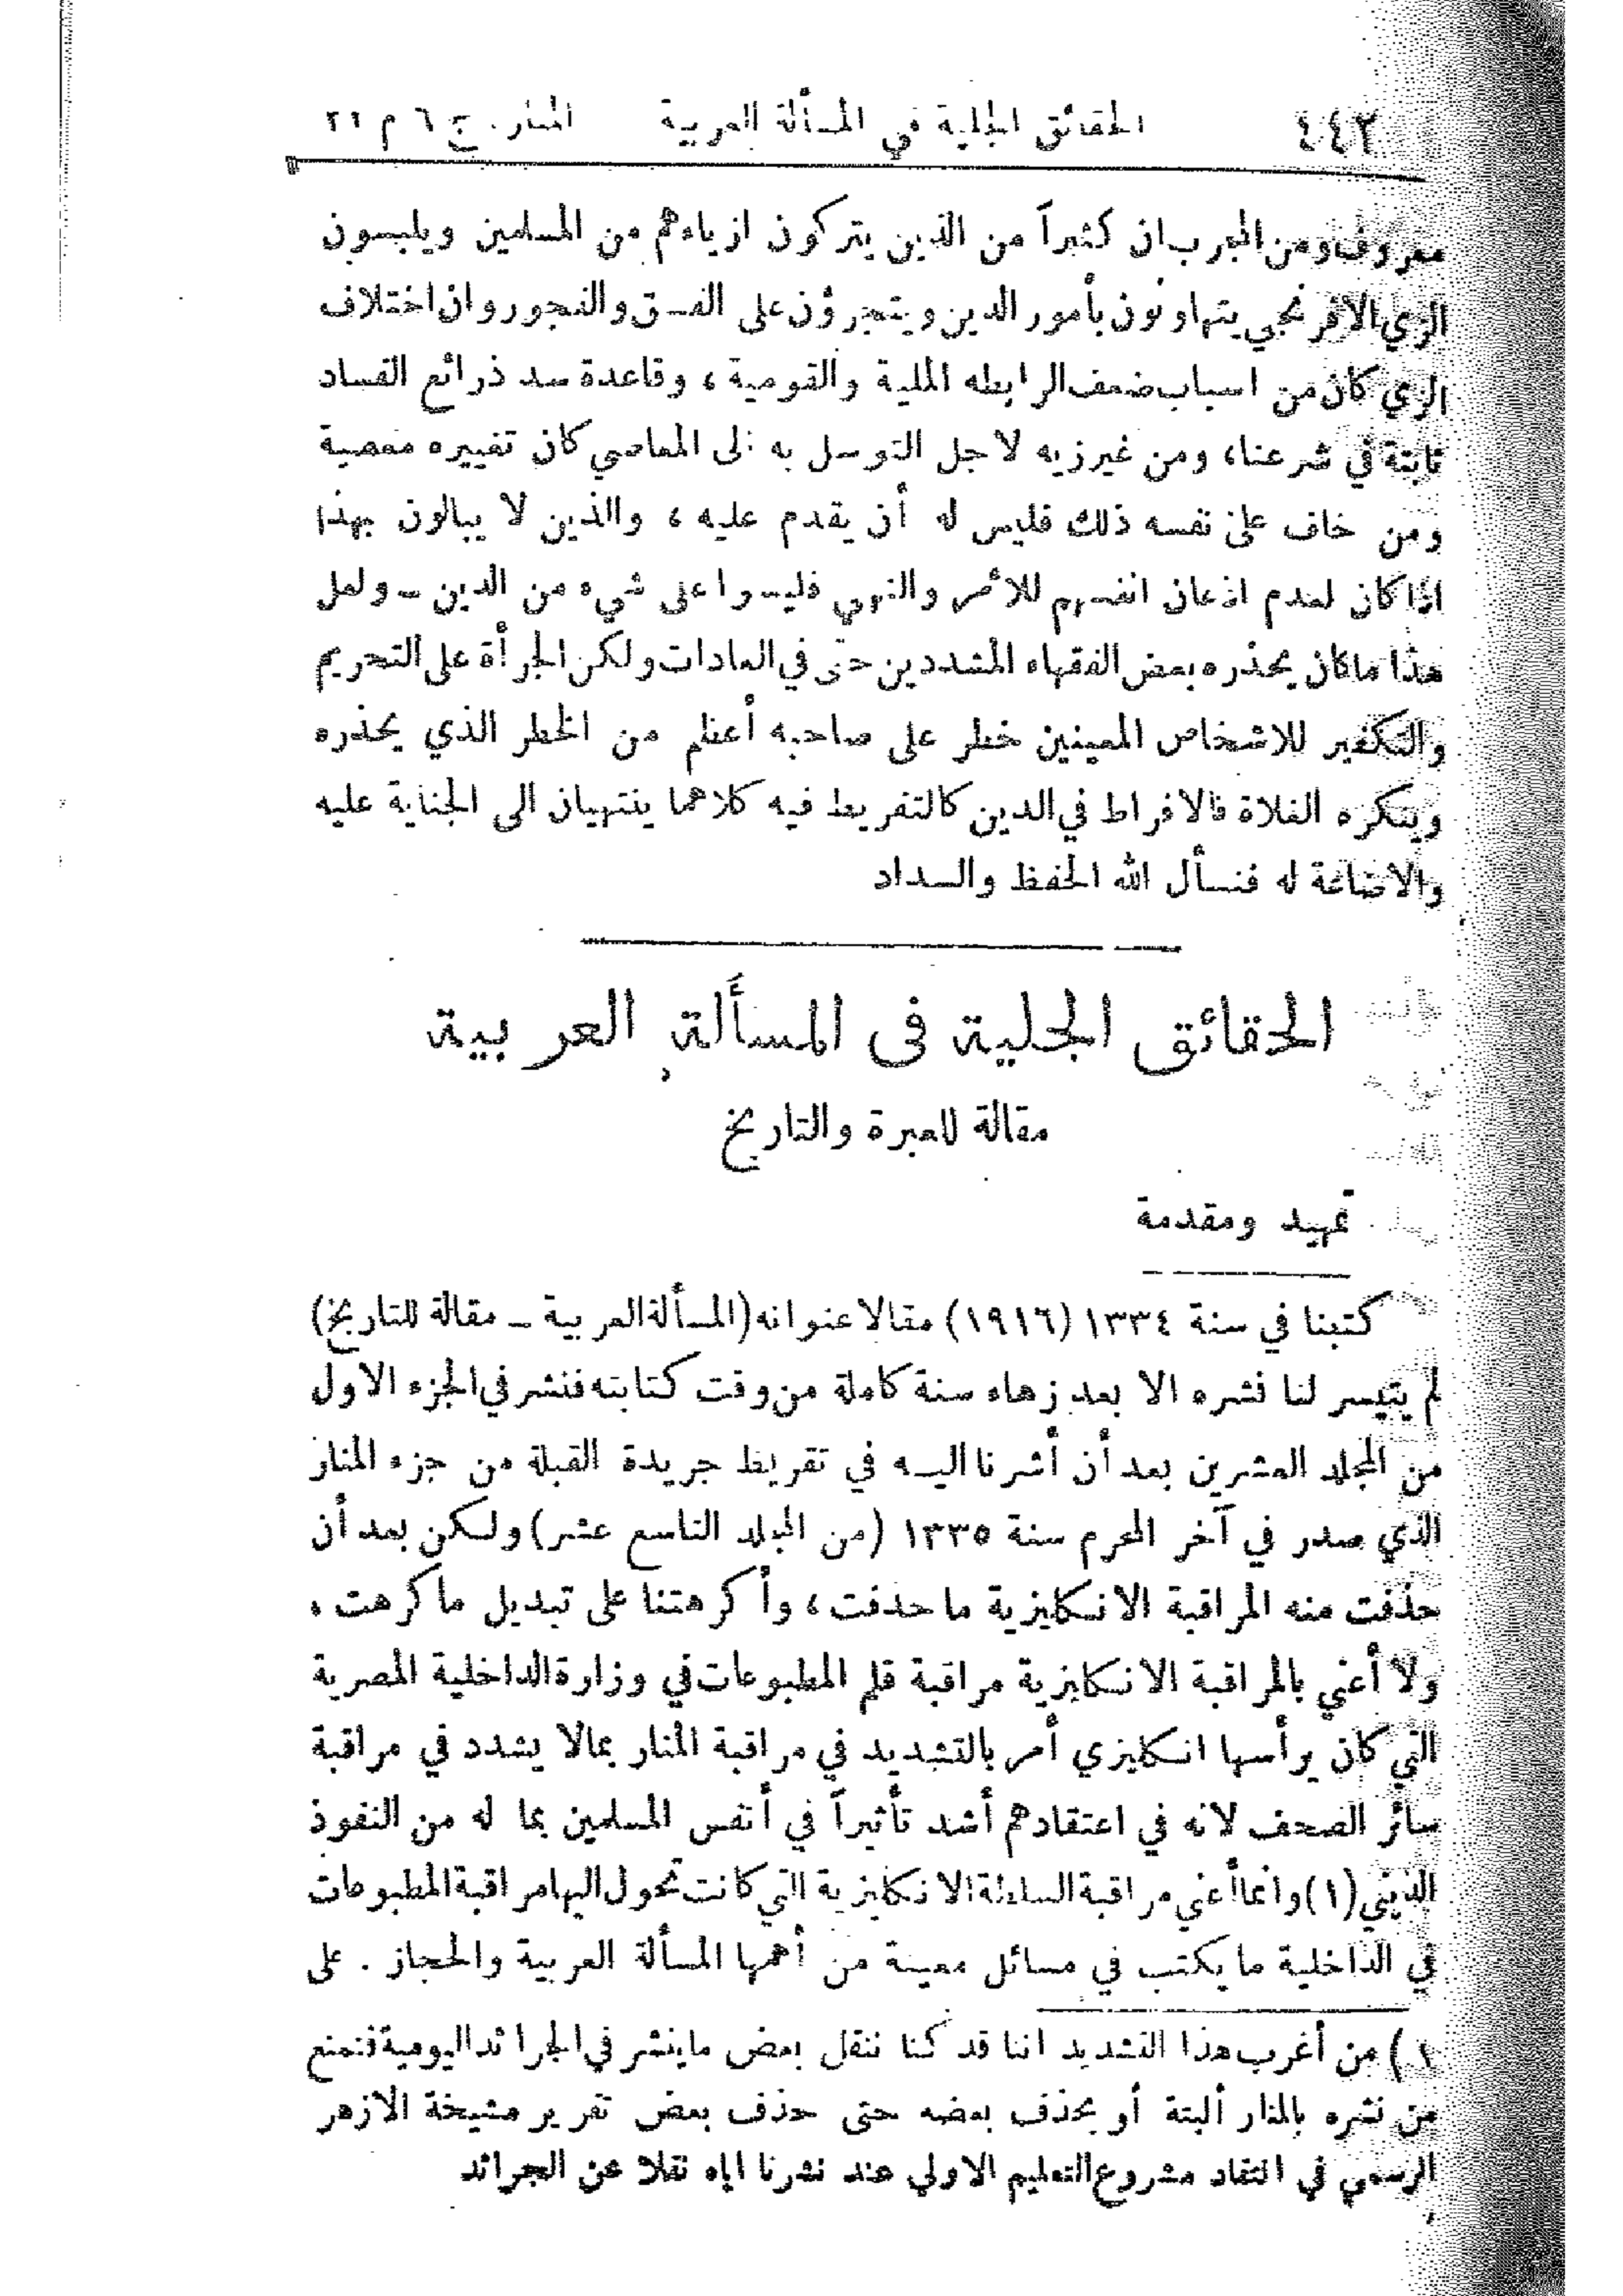 ٤٤٢ الحقائق الجلية في المسألة العربية المنار. ج ٦ م ٢١
معروف ومن المجرب ان كثيراً من الذين يتركون ازياءهم من المسلمين ويلبسون
الزي الافرنجي يتهاونون بأمور الدين ويتجرؤن على الفسق والفجور وان اختلاف
الزي كان من اسباب ضعف الرابطه الملية والقومية ، وقاعدة سد ذرائع الفساد
ثابتة في شرعنا، ومن غير زيه لاجل التوسل به الى المعاصي كان تغييره معصية
ومن خاف على نفسه ذلك فليس له أن يقدم عليه ، والذين لا يبالون بهذا
اذا كان لعدم اذعان انفسهم للأمر والنهي فليسوا على شيء من الدين ــ ولعل
هذا ما كان يحذره بعض الفقهاء المشددين حتى في العادات ولكن الجرأة على التحريم
والتكفير للاشخاص المعينين خطر على صاحبه أعظم من الخطر الذي يحذره
وينكره الغلاة فالافراط في الدين كالتفريط فيه كلاهما ينتهيان الى الجناية عليه
والاضاعة له فنسأل الله الحفظ والسداد
الحقائق الجلية في المسألة العربية
مقالة للعبرة والتاريخ
تمهيد ومقدمة
كتبنا في سنة ١٣٣٤ (١٩١٦) مقالا عنوانه (المسألة العربية ــ مقالة للتاريخ)
لم يتيسر لنا نشره الا بعد زهاء سنة كاملة من وقت كتابته فنشر في الجزء الاول
من المجلد العشرين بعد أن أشرنا اليه في تقريظ جريدة القبلة من جزء المنار
الذي صدر في آخر المحرم سنة ١٣٣٥ (من المجلد التاسع عشر) ولكن بعد أن
حذفت منه المراقبة الانكليزية ما حذفت ، وأكرهتنا على تبديل ما كرهت .
ولا أعني بالمراقبة الانكليزية مراقبة قلم المطبوعات في وزارة الداخلية المصرية
التي كان يرأسها انكليزي أمر بالتشديد في مراقبة المنار بمالا يشدد في مراقبة
سائر الصحف لانه في اعتقادهم أشد تأثيراً في أنفس المسلمين بما له من النفوذ
الديني (١) وانما أعني مراقبة السلطة الانكليزية التي كانت تحول اليها مراقبة المطبوعات
في الداخلية ما يكتب في مسائل معينة من أهمها المسألة العربية والحجاز . على
١) من أغرب هذا التشديد اننا قد كنا ننقل بعض ما ينشر في الجرائد اليومية فنمنع
من نشره بالمنار ألبتة أو يحذف بعضه حتى حذف بعض تقرير مشيخة الازهر
الرسمي في انتقاد مشروع التعليم الاولي عند نشرنا اياه نقلا عن الجرائد